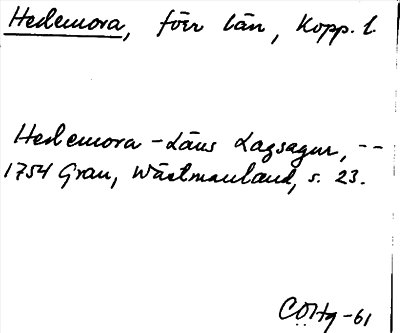 Hedemora, förr län, Kopp. l.
Hedemora - Läns Lagsagur, --
1754 Grau, Wästmanland, s. 23.
CÖHg -61